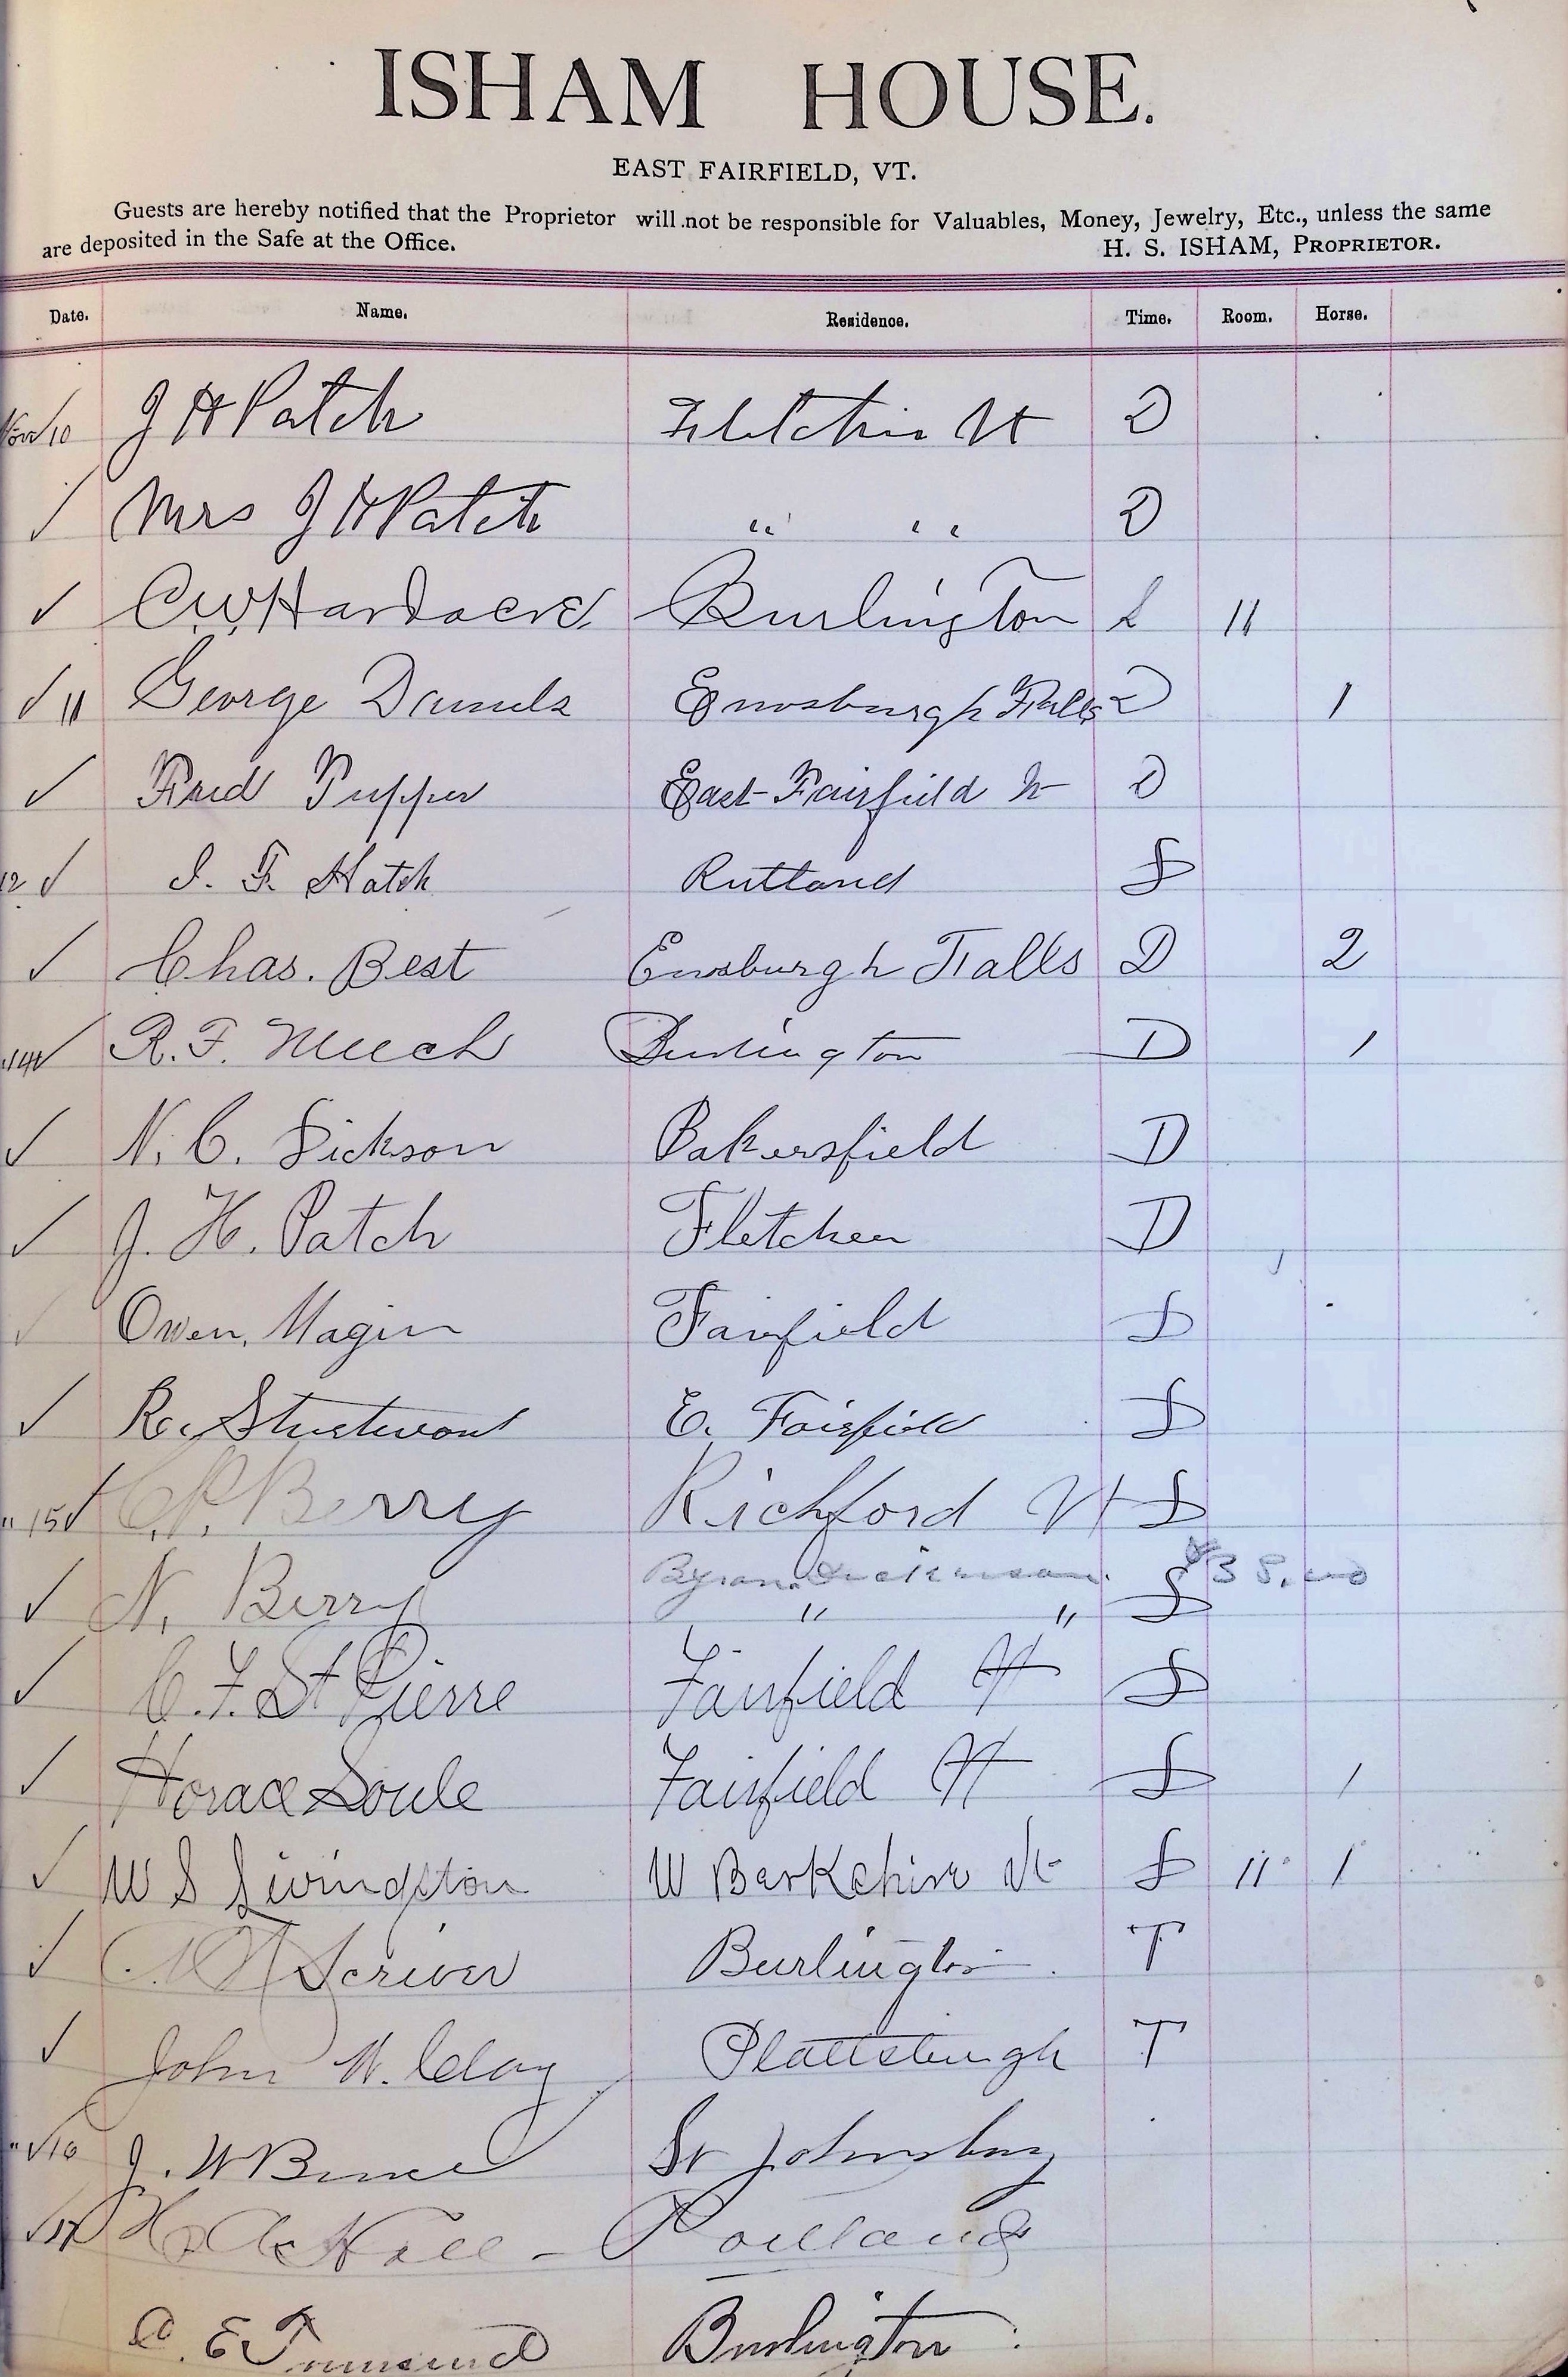 ISHAM HOUSE.
EAST FAIRFIELD, VT.
Guests are hereby notified that the Proprietor will not be responsible for Valuables, Money, Jewelry, Etc., unless the same
are deposited in the Safe at the Office. H. S. ISHAM, PROPRIETOR.
Date. Name. Residence. Time. Room. Horse.
Nov 10 J H Patch Fletcher Vt D
Mrs J H Patch " " D
C. W. Hardacre Burlington L 11
11 George Daniels Enosburgh Falls D 1
Fred Tupper East Fairfield Vt D
12 I. F. Hatch Rutland S
Chas. Best Enosburgh Falls D 2
14 R. F. Meech Burlington D 1
N. C. Dickson Bakersfield D
J. H. Patch Fletcher D
Owen Magin Fairfield S
R. Sturtevant E. Fairfield S
" 15 C. P. Berry Richford Vt S
Byron Dickinson $35.00
N. Berry " " S
C. F. St Pierre Fairfield Vt S
Horace Soule Fairfield Vt S 1
W S Livingston W Berkshire Vt S 11 1
Scriver Burlington T
John W. Clay Plattsburgh T
" 16 J. W Bruce St Johnsbury
17 Hall - Portland
E Townsend Burlington